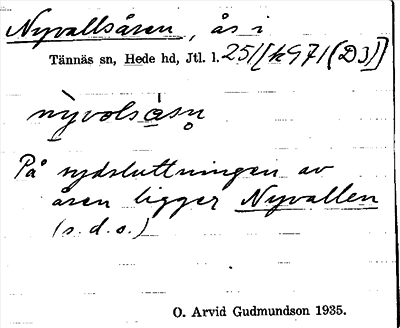 Nyvallsåsen, ås i
Tännäs sn, Hede hd, Jtl. l. 251 [k971 (D3)]
nỳvolsàsn̥
På sydsluttningen av
åsen ligger Nyvallen
(s.d.o.)
O. Arvid Gudmundson 1935.